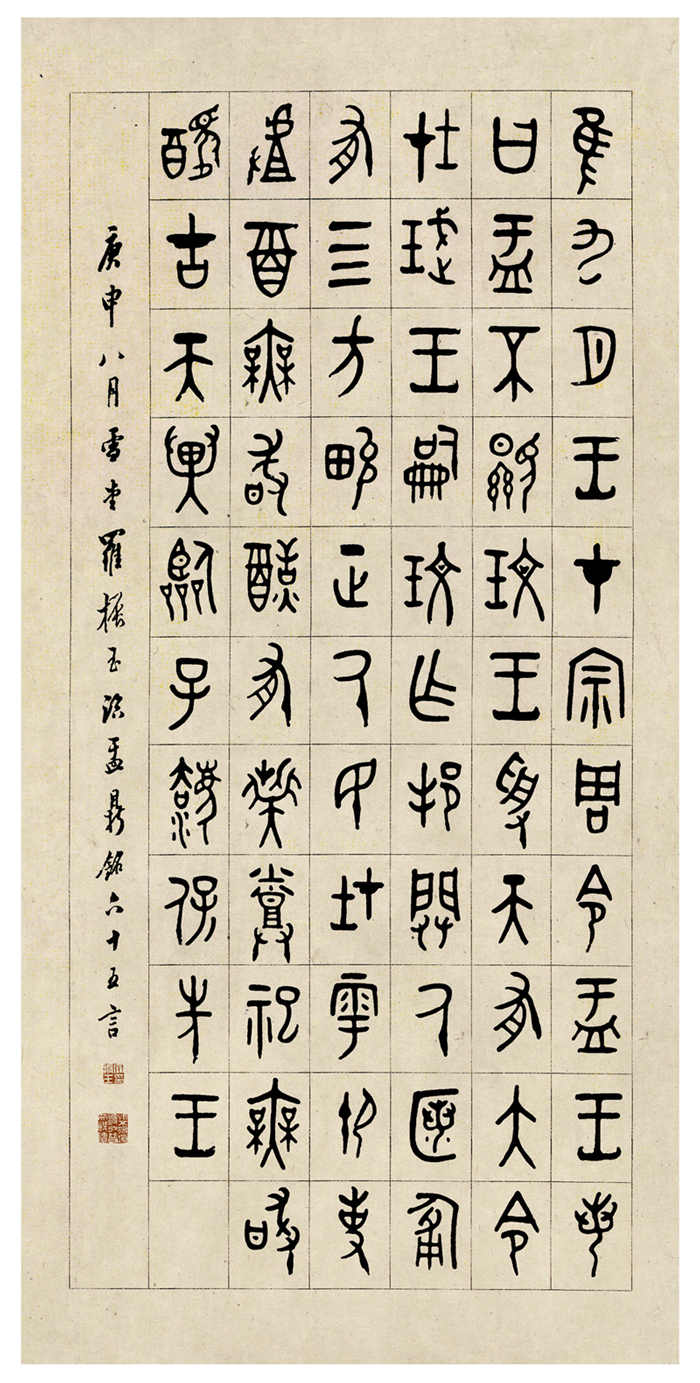 隹九月王才宗周令盂王若
曰盂不顯玟王受天有大令
在珷王嗣玟乍邦闢氒匿匍
有四方畯正氒民在雩御事
𠭯酉無敢酖有髭烝祀無敢
醻古天異臨子灋保先王
庚申八月雪堂羅振玉臨盂鼎銘六十五言